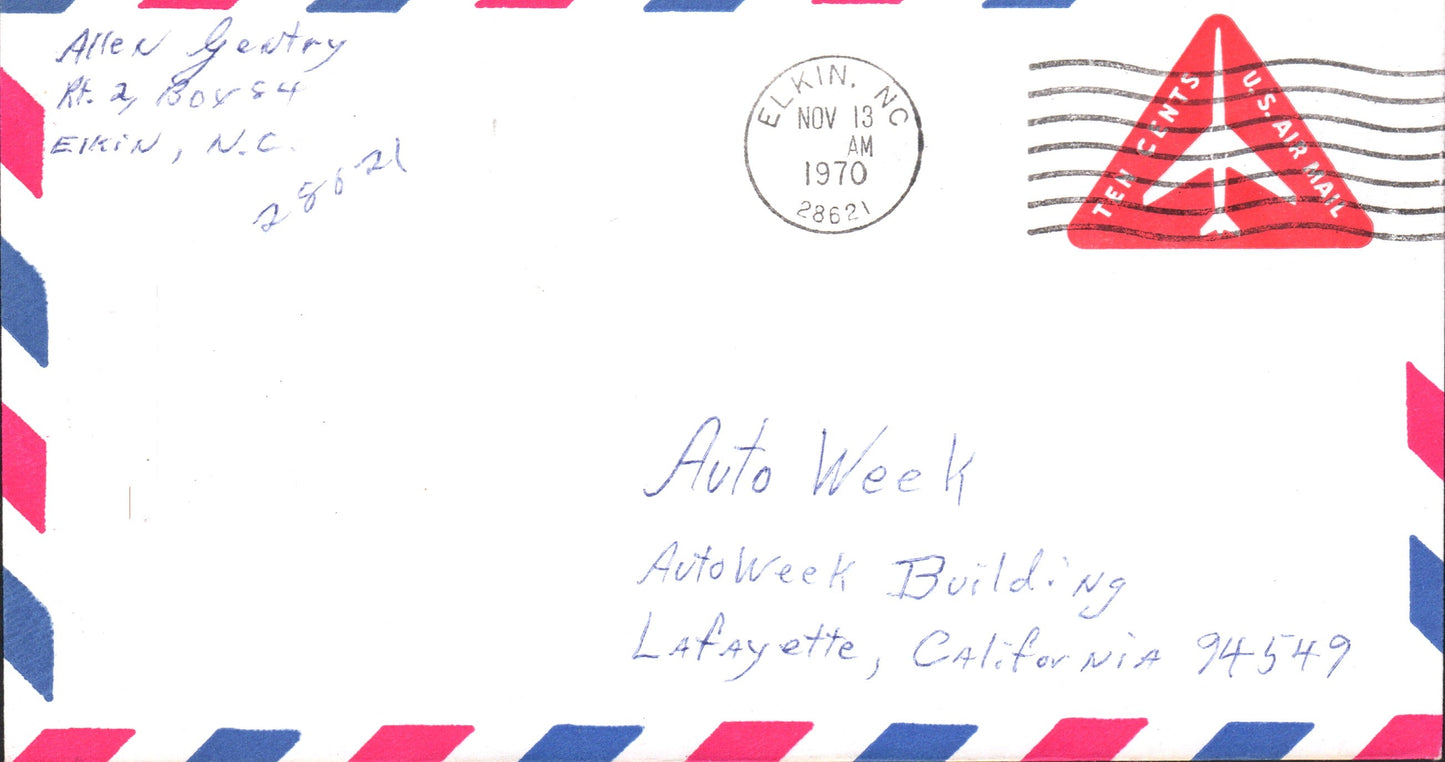 Allen Gentry
Rt. 2, Box 84
Elkin, N.C.
28621
ELKIN, NC
NOV 13
AM
1970
28621
TEN CENTS
U.S. AIR MAIL
Auto Week
AutoWeek Building
Lafayette, California 94549